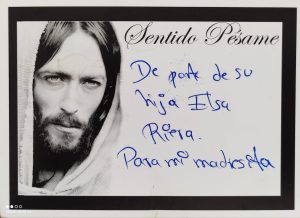 Sentido Pésame
De parte de su
hija Elsa
Riera.
Para mi madresita